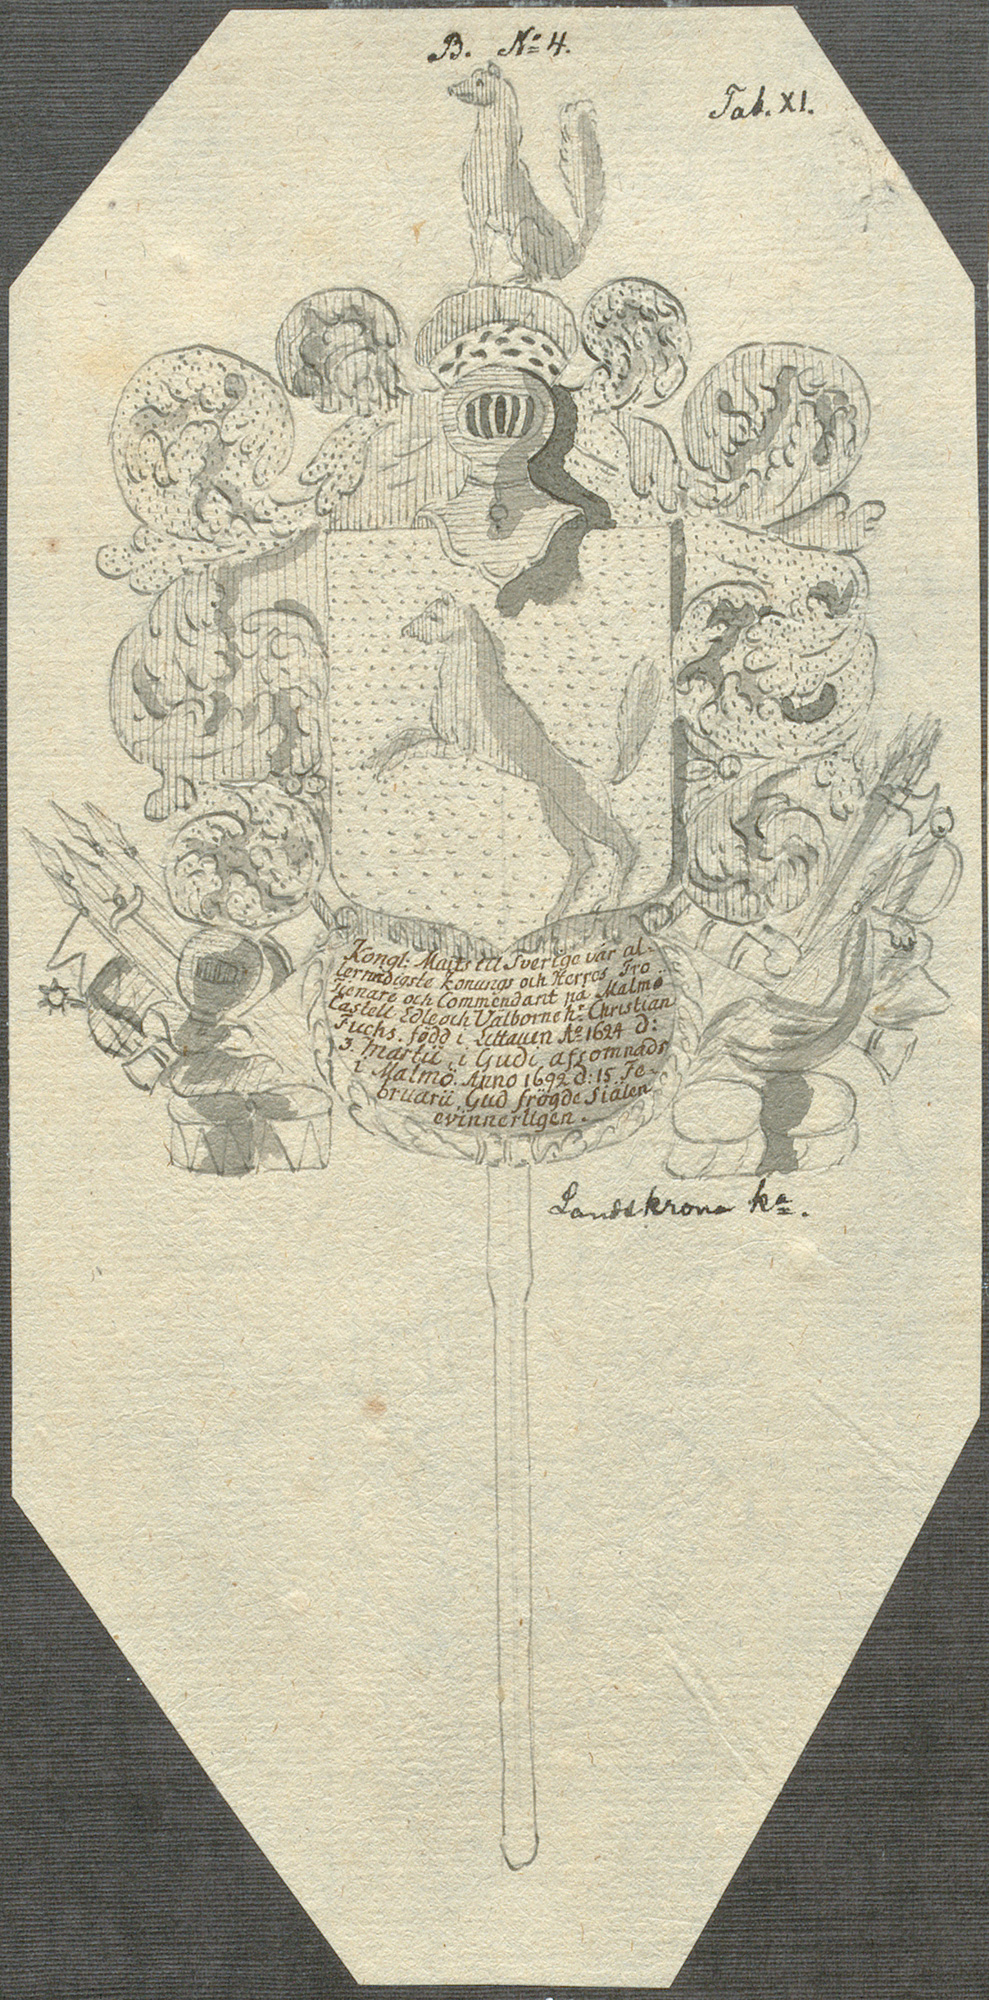 B. No 4.
Tab. XI.
Kongl: Maijts til Sverige vår al-
lernådigste Konungs och Herres Tro
Tienare och Commendant på Malmö
Castell Edle och Valborne hr Christian
Fuchs. född i Littauen Ao 1624 d:
3. Martii, i Gudi afsomnade
i Malmö. Anno 1692 d: 15 Fe-
bruarii. Gud frögde Siälen
evinnerligen.
Landskrona ka.